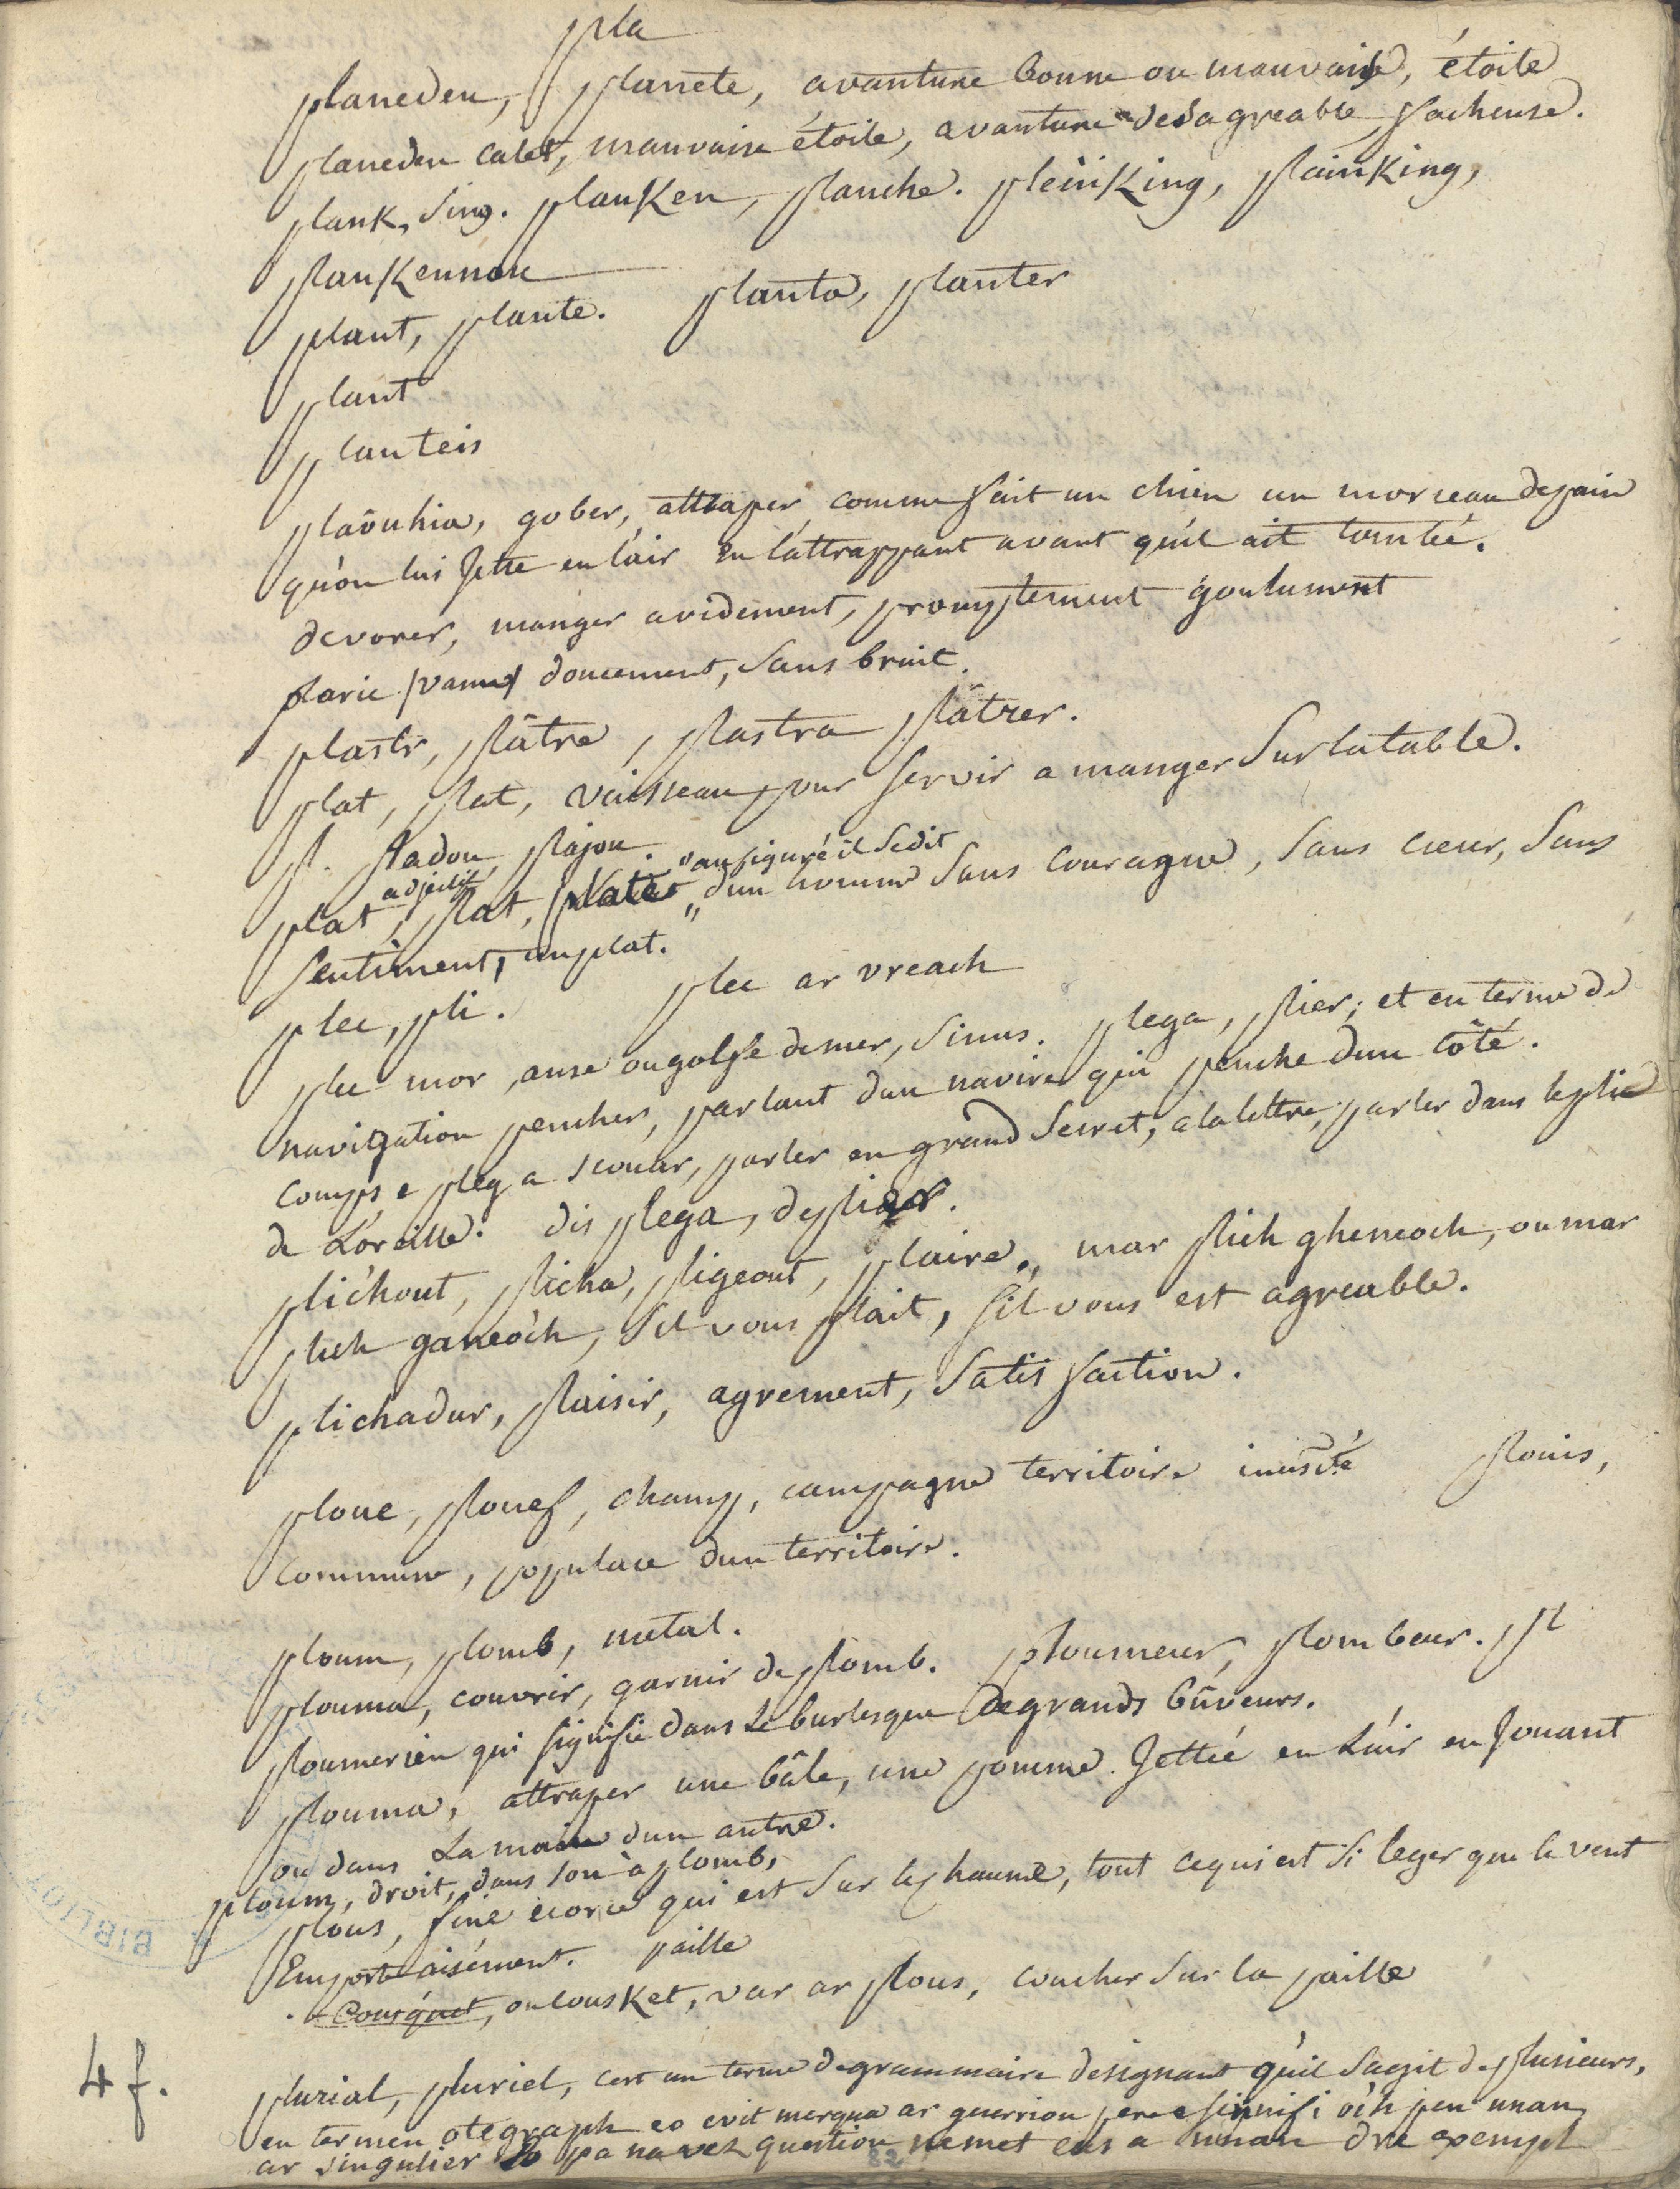 pla
planeden, planete, avanture bonne ou mauvaise, étoile
planeden calet, mauvaise étoile, avanture desagreable, facheuse.
plank, sing. planken, planche. pleinking, plainking,
plankennou
plant, plante. planta, planter
plant
planteis
plaôuhia, gober, attraper comme fait un chien un morceau depain
qu'on lui Jette en l'air en l'attrappant avant qu'il ait tombé.
devorer, manger avidement, promptement goulument
plaric /vanned/ doucement, sans bruit.
plastr, plâtre, plastra plâtrer.
plat, plat, vaisseau pour servir a manger sur latable.
pl. pladou, plajou.
plat adjectif, plat, plate "au figuré il sedit
"d'un homme sans couragne, sans cœur, sans
sentiment, un plat.
plec, pli. plec ar vreach
plec mor, anse ou golfe demer, sinus. plega, plier; et en terme de
navigation pencher, parlant d'un navire qui penche d'un côté.
comps e pleg a scouar, parler en grand secret, alalettre, parler dans lepli
de L'oreille. dis plega, deplier.
plichout, plicha, pligeout, plaire., mar plich gheneoch, ou mar
plich ganeoch, s'il vous plait, s'il vous est agreable.
plichadur, plaisir, agrement, satisfaction.
ploue, plouef, champ, campagne territoire inusité plouis,
commune, populace d'un territoire.
ploum, plomb, metal.
plouma, couvrir, garnir de plomb. ploumeur, plombeur. pl
ploumerien qui signifie dans Le burlesque degrands bûveurs.
plouma, attraper une bâle, une pomme Jettée en L'air en Jouant
ou dans La main d'un autre.
ploum, droit, dans son àplomb,
plous, fine ecorce qui est sur lechaume, tout cequi est si leger que le vent
Emporte aisément. paille
. Cousquet, ou cousket, var ar plous, coucher sur la paille
plurial, pluriel, c'est un terme degrammaire designant qu'il sagit deplusieurs,
en termen otegraph eo evit merqua ar guerriou pere e sinifi oc'h pen unan
ar singulier so pa na vez question nemet eus a unan dre exempl
4 f.
BIBLIOT